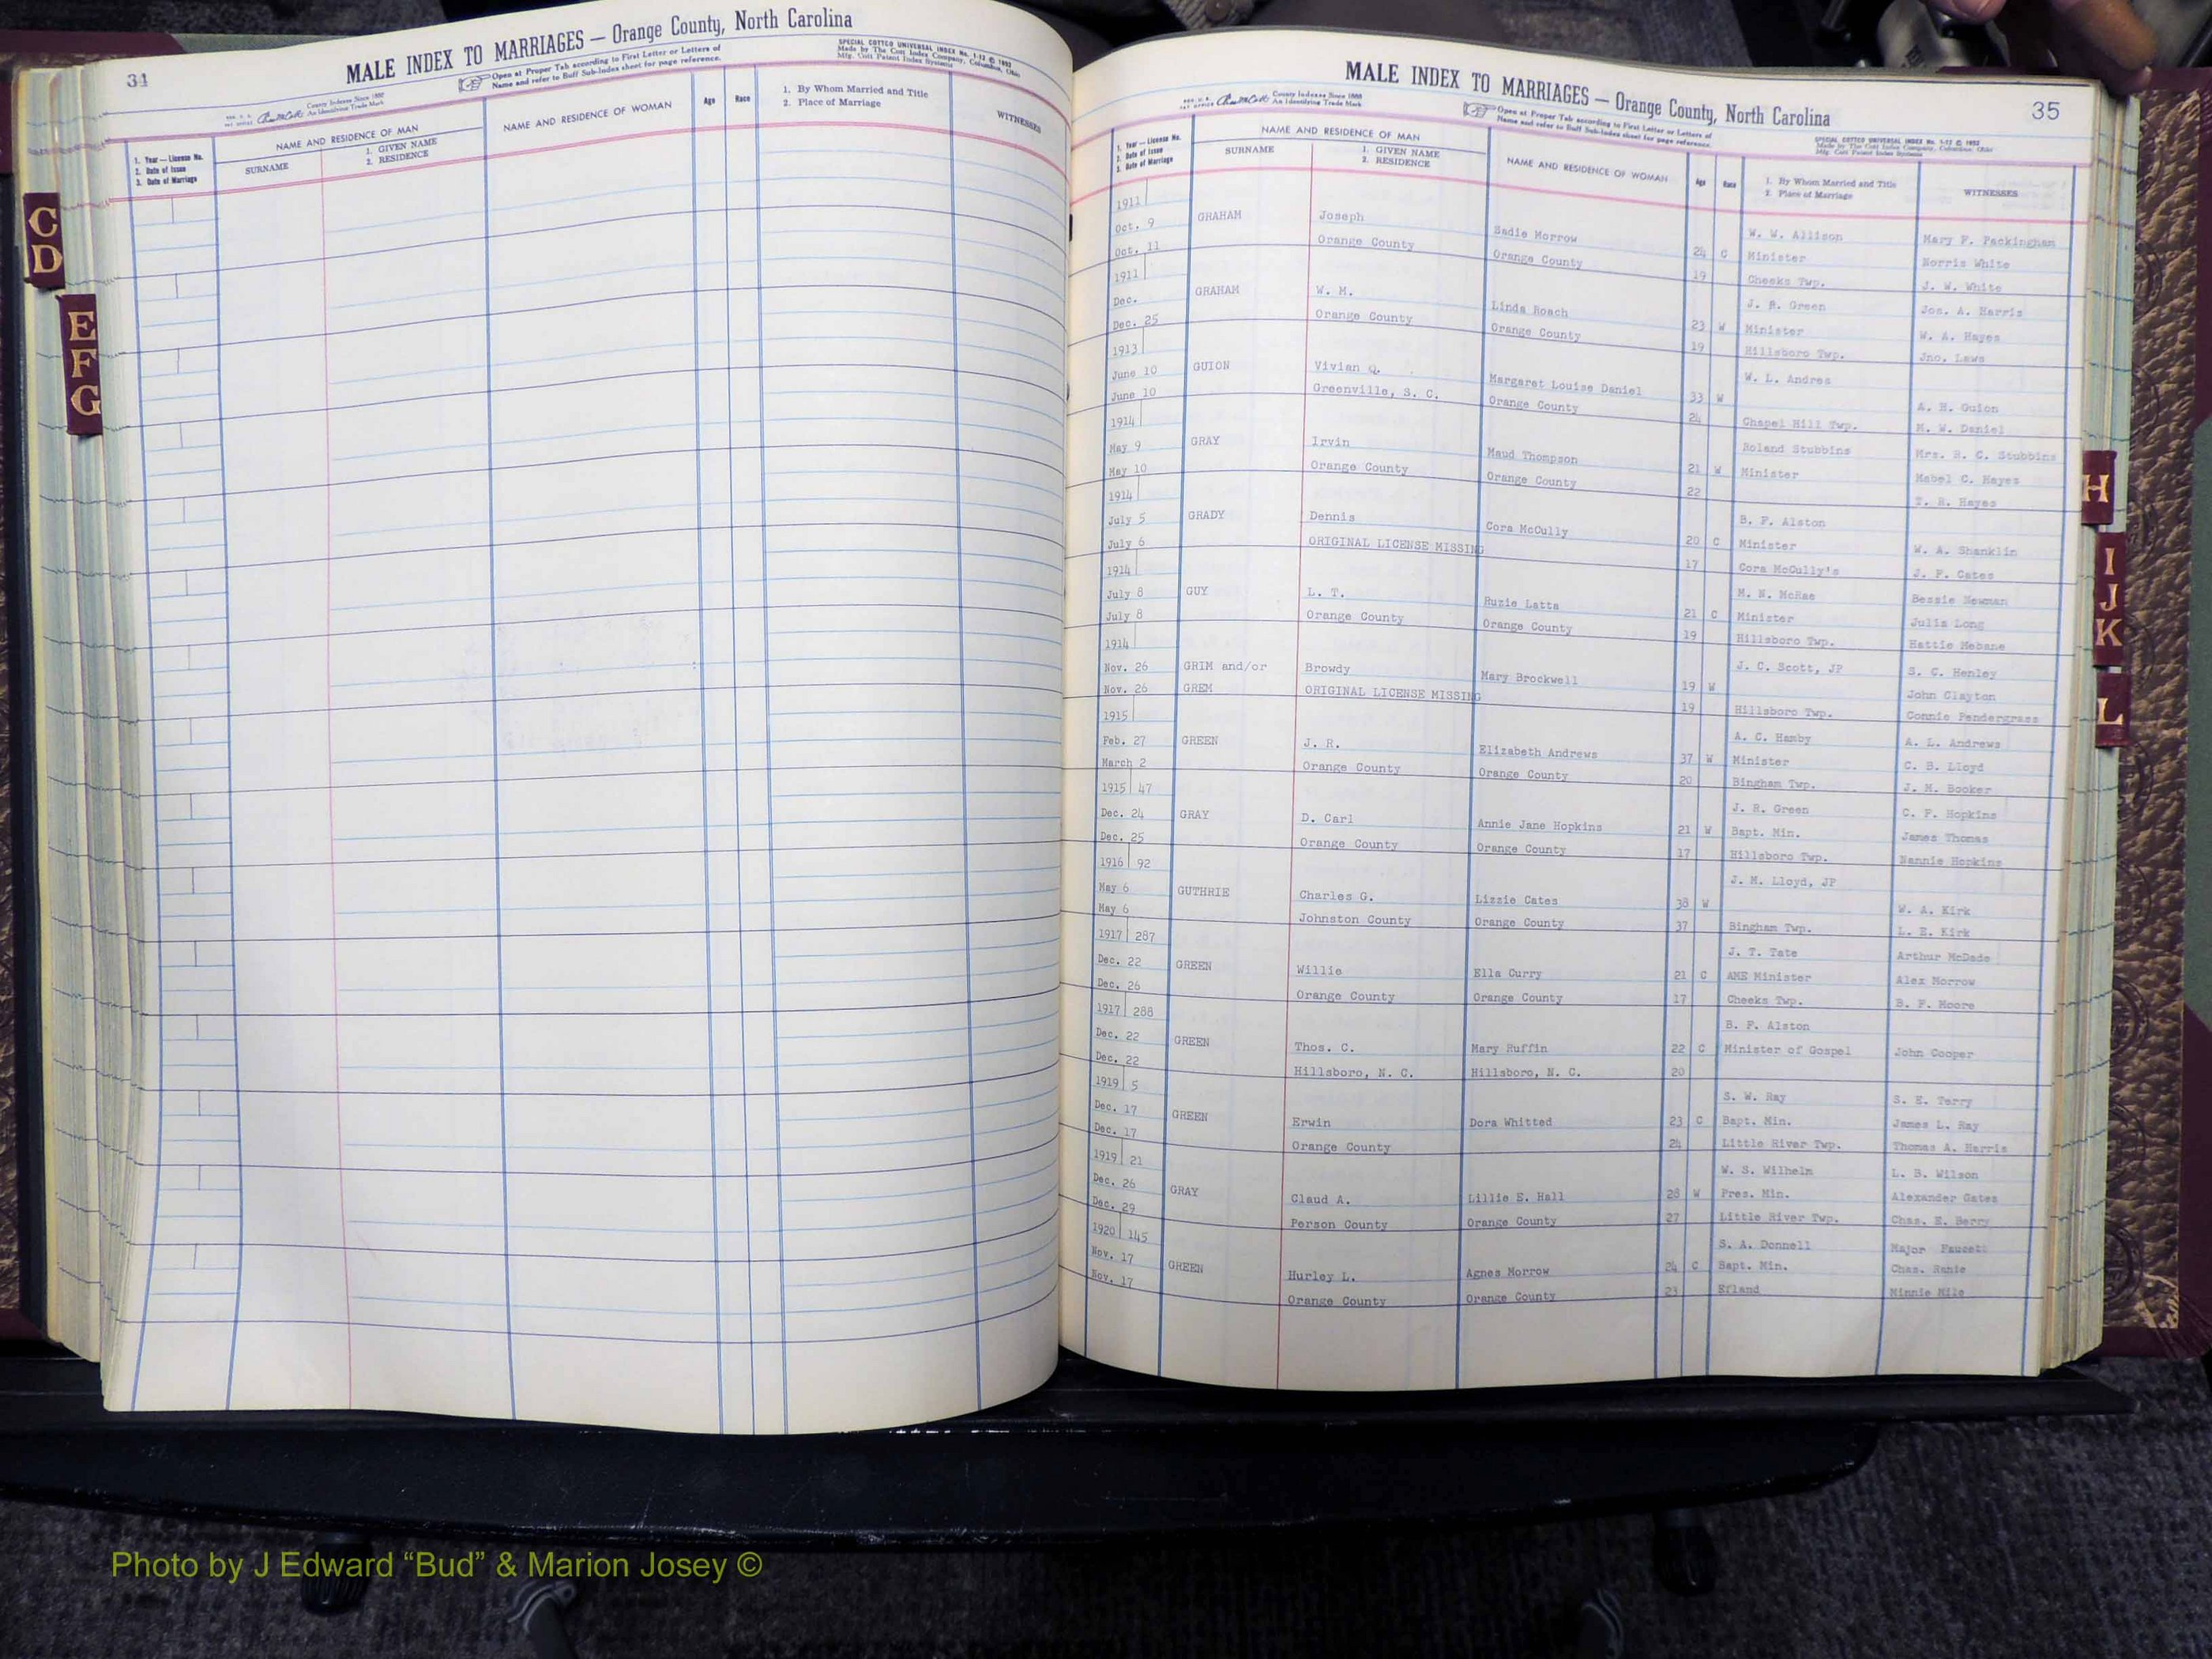 34
MALE INDEX TO MARRIAGES — Orange County, North Carolina
Open at Proper Tab according to First Letter or Letters of
Name and refer to Buff Sub-Index sheet for page reference.
SPECIAL COTTCO UNIVERSAL INDEX No. 1-12 © 1952
Made by The Cott Index Company, Columbus, Ohio
Mfg. Cott Patent Index Systems
County Indexes Since 1888
An Identifying Trade Mark
1. Year — License No.
2. Date of Issue
3. Date of Marriage
NAME AND RESIDENCE OF MAN
SURNAME
1. GIVEN NAME
2. RESIDENCE
NAME AND RESIDENCE OF WOMAN
Age
Race
1. By Whom Married and Title
2. Place of Marriage
WITNESSES
C
D
E
F
G
MALE INDEX TO MARRIAGES — Orange County, North Carolina
35
County Indexes Since 1888
An Identifying Trade Mark
Open at Proper Tab according to First Letter or Letters of
Name and refer to Buff Sub-Index sheet for page reference.
SPECIAL COTTCO UNIVERSAL INDEX No. 1-12 © 1952
Made by The Cott Index Company, Columbus, Ohio
Mfg. Cott Patent Index Systems
1. Year — License No.
2. Date of Issue
3. Date of Marriage
NAME AND RESIDENCE OF MAN
SURNAME
1. GIVEN NAME
2. RESIDENCE
NAME AND RESIDENCE OF WOMAN
Age
Race
1. By Whom Married and Title
2. Place of Marriage
WITNESSES
1911 W. W. Allison Mary F. Packingham
Oct. 9 GRAHAM Joseph Sadie Morrow 24 C Minister Norris White
Oct. 11 Orange County Orange County 19 Cheeks Twp. J. W. White
1911 J. R. Green Jos. A. Harris
Dec. GRAHAM W. M. Linda Roach 23 W Minister W. A. Hayes
Dec. 25 Orange County Orange County 19 Hillsboro Twp. Jno. Laws
1913 W. L. Andres
June 10 GUION Vivian Q. Margaret Louise Daniel 33 W A. H. Guion
June 10 Greenville, S. C. Orange County 24 Chapel Hill Twp. M. W. Daniel
1914 Roland Stubbins Mrs. R. C. Stubbins
May 9 GRAY Irvin Maud Thompson 21 W Minister Mabel C. Hayes
May 10 Orange County Orange County 22 T. R. Hayes
1914 B. F. Alston
July 5 GRADY Dennis Cora McCully 20 C Minister W. A. Shanklin
July 6 ORIGINAL LICENSE MISSING 17 Cora McCully's J. P. Cates
1914 M. N. McRae Bessie Newman
July 8 GUY L. T. Ruzie Latta 21 C Minister Julia Long
July 8 Orange County Orange County 19 Hillsboro Twp. Hattie Mebane
1914 J. C. Scott, JP S. C. Henley
Nov. 26 GRIM and/or Browdy Mary Brockwell 19 W John Clayton
Nov. 26 GREM ORIGINAL LICENSE MISSING 19 Hillsboro Twp. Connie Pendergrass
1915 A. C. Hamby A. L. Andrews
Feb. 27 GREEN J. R. Elizabeth Andrews 37 W Minister C. B. Lloyd
March 2 Orange County Orange County 20 Bingham Twp. J. M. Booker
1915 47 J. R. Green C. F. Hopkins
Dec. 24 GRAY D. Carl Annie Jane Hopkins 21 W Bapt. Min. James Thomas
Dec. 25 Orange County Orange County 17 Hillsboro Twp. Nannie Hopkins
1916 92 J. M. Lloyd, JP
May 6 GUTHRIE Charles G. Lizzie Cates 38 W W. A. Kirk
May 6 Johnston County Orange County 37 Bingham Twp. L. E. Kirk
1917 287 J. T. Tate Arthur McDade
Dec. 22 GREEN Willie Ella Curry 21 C AME Minister Alex Morrow
Dec. 26 Orange County Orange County 17 Cheeks Twp. B. F. Moore
1917 288 B. F. Alston
Dec. 22 GREEN Thos. C. Mary Ruffin 22 C Minister of Gospel John Cooper
Dec. 22 Hillsboro, N. C. Hillsboro, N. C. 20
1919 5 S. W. Ray S. E. Terry
Dec. 17 GREEN Erwin Dora Whitted 23 C Bapt. Min. James L. Ray
Dec. 17 Orange County 24 Little River Twp. Thomas A. Harris
1919 21 W. S. Wilhelm L. B. Wilson
Dec. 26 GRAY Claud A. Lillie E. Hall 28 W Pres. Min. Alexander Gates
Dec. 29 Person County Orange County 27 Little River Twp. Chas. E. Berry
1920 145 S. A. Donnell Major Faucett
Nov. 17 GREEN Hurley L. Agnes Morrow 24 C Bapt. Min. Chas.
Nov. 17 Orange County Orange County 23 Efland Minnie
H
I
J
K
L
Photo by J Edward “Bud” & Marion Josey ©